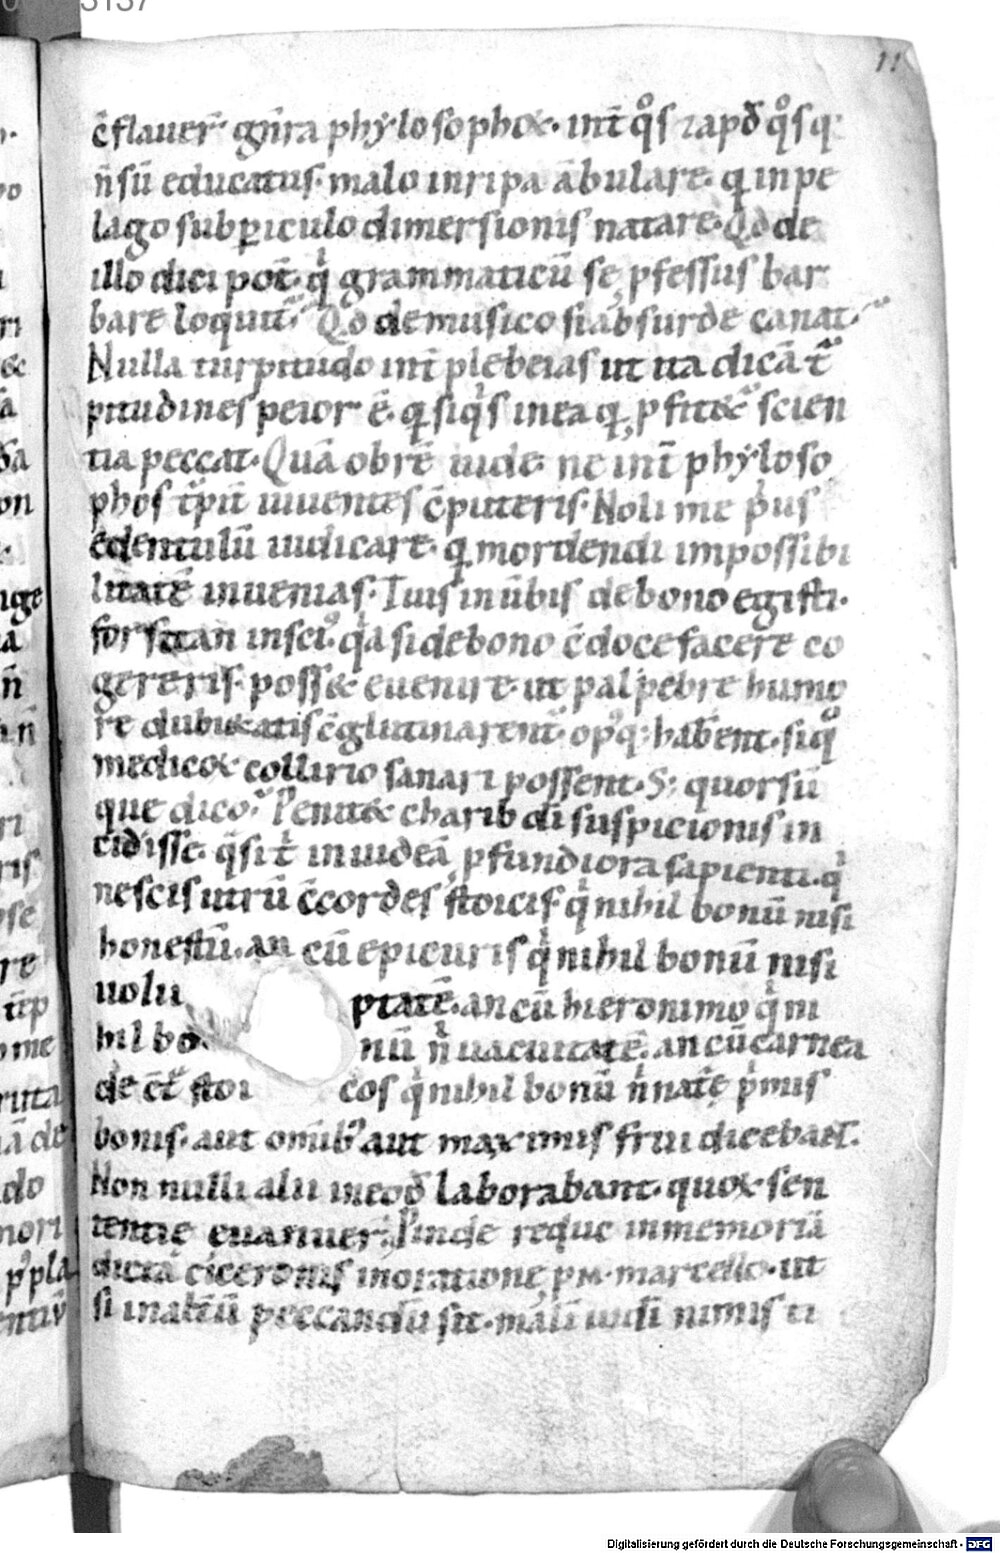 3137
11
c̄flauer̄ gn̄ra phẏlosophoꝝ. int̄ qͦs ⁊ apđ qͦs q;
n̄ sū educatus. malo in ripa ābulare. q̄ in pe
lago sub ꝑiculo dimersionis natare. Qđ de
illo dici pot̄. qͥ grammaticū se ꝓfessus bar
bare loquit᷑. Qđ de musico si absurde canat.
Nulla turpitudo int̄ plebeias ut ita dicā t᷑
pitudines peior ē. q̄ siqͥs in ea q̄ ꝓfitet᷑ scien
tia peccat. Quā obrē uide ne int̄ phẏloso
phos t᷑pit̄ iuuentes c̄puteris. Noli me pͥus
edentulū iudicare. q̄ mordendi impossibi
litatē inuenias. Tuis in ūbis de bono egisti.
forsitan insciꝰ. qͥa si de bono c̄doce facere co
gereris. posset euenire ut palpebre humo
re dubietatis c̄glutinarent᷑. opꝰq; habent. siq̄
medicoꝝ collirio sanari possent. S; quorsū
que dico.᷑ Penitet charibdi suspicionis in
cidisse. qͣsi t̄ inuideā ꝓfundiora sapienti. qͥ
nescis utrū c̄cordes stoicis. qͥ nihil bonū nisi
honestū. an cū epicuris qͥ nihil bonū nisi
uolu ptatē. an cū hieronimo qͥ ni
hil bo nū n̄ uacuitatē. an cū carnea
de c̄t᷑ stoi cos qͥ nihil bonū n̄ nat̄e pͥmis
bonis. aut omībꝰ aut maximis frui dicebat̄.
Non nulli alii in eođ laborabant. quoꝝ sen
tentie euanuer̄. Pinde reduc in memoriā
dicta ciceronis in oratione ꝓ .M. marcello. ut
si in alt̄ū peccandū sit. mālī uidi nimis ti
Digitalisierung gefördert durch die Deutsche Forschungsgemeinschaft - DFG